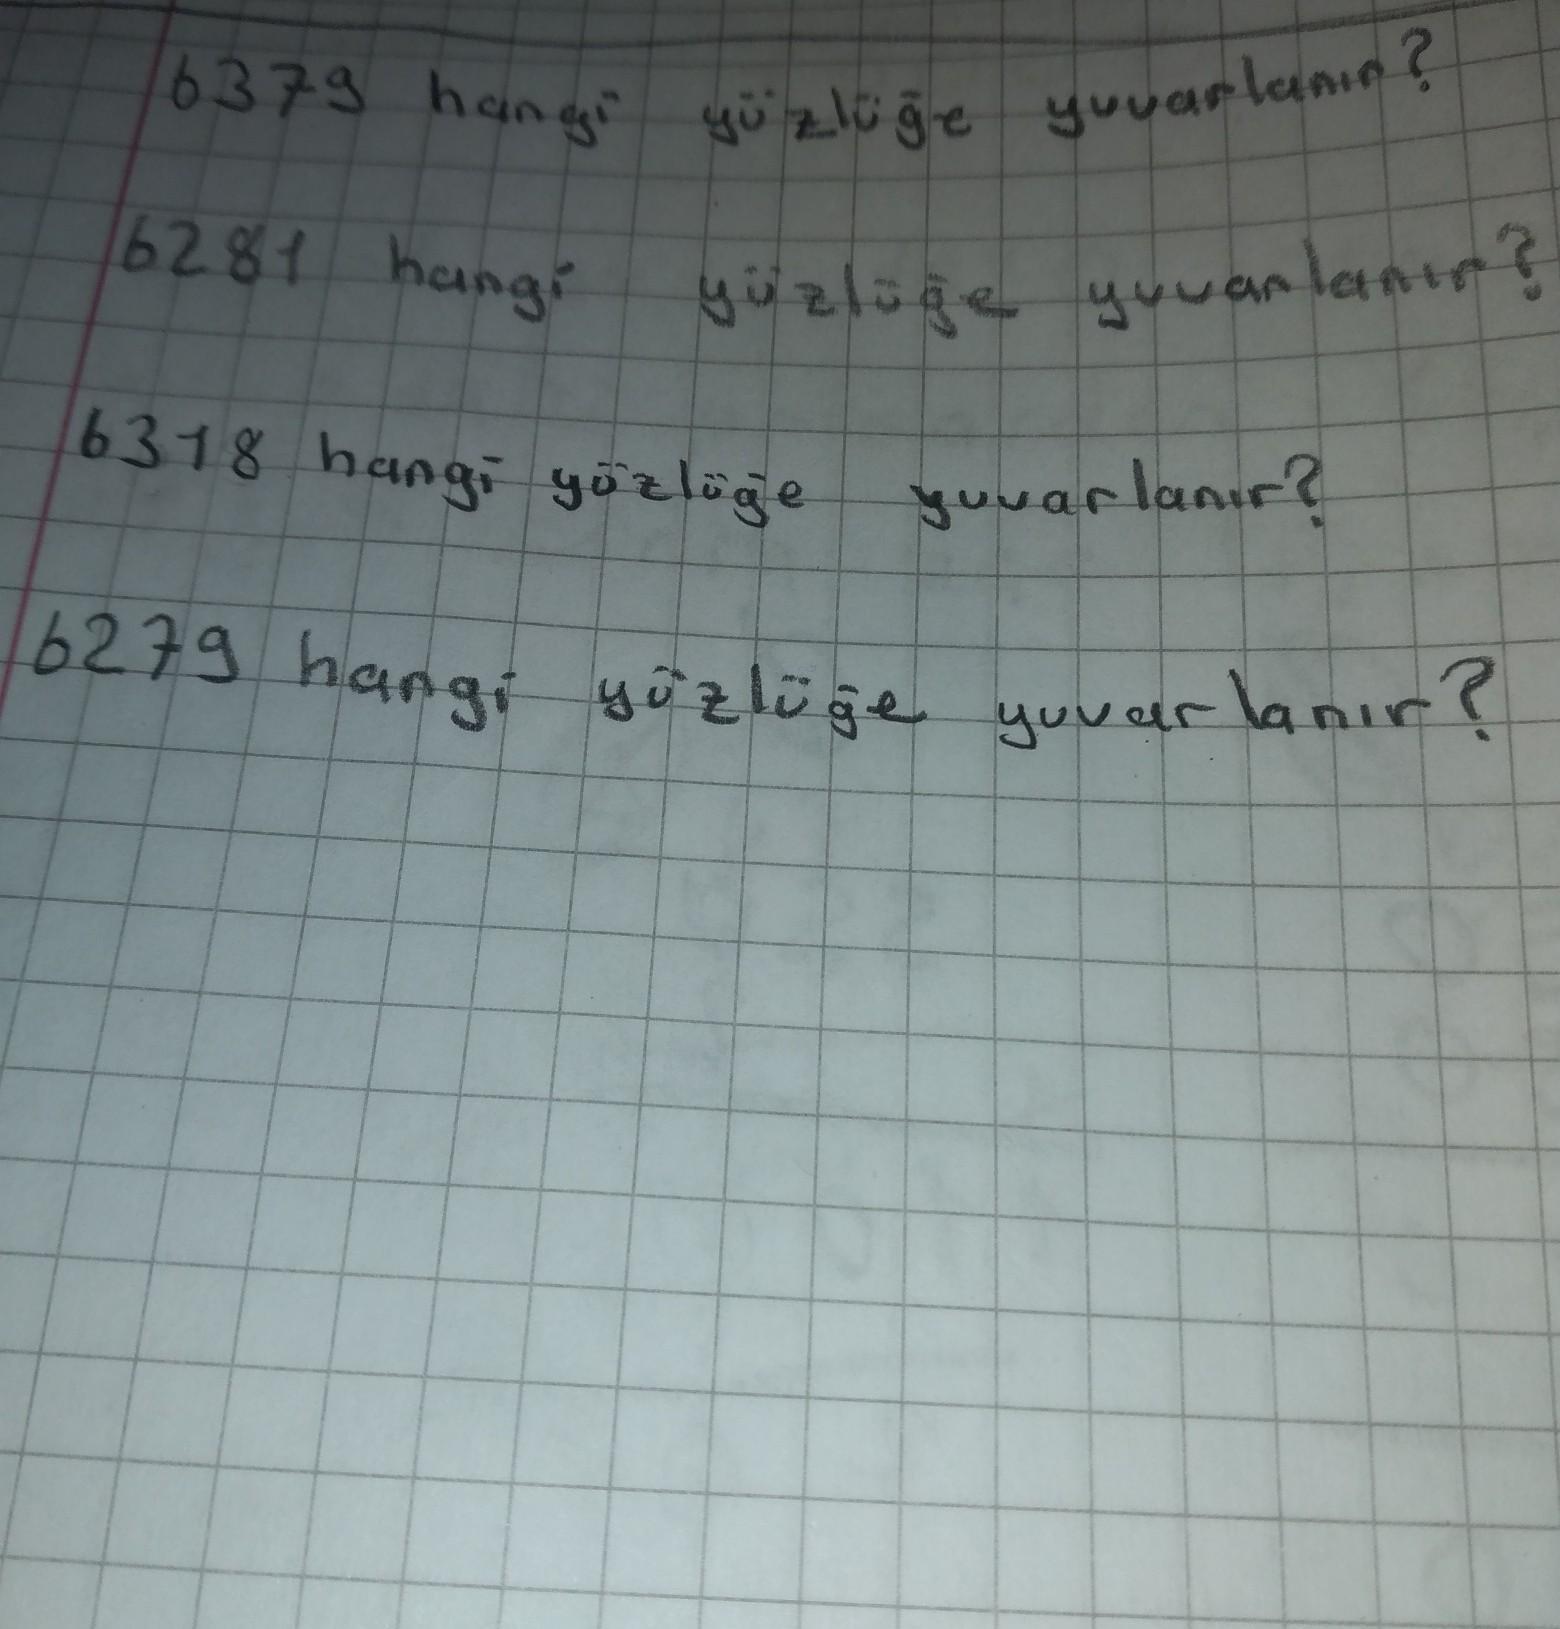 6379 hangi yüzlüğe yuvarlanır?
6281 hangi yüzlüğe yuvarlanır?
6318 hangi yüzlüğe yuvarlanır?
6279 hangi yüzlüğe yuvarlanır?